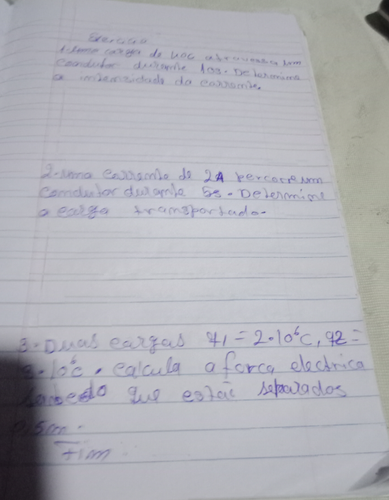 Exercício
1-Uma carga de 40C atravessa um
condutor durante 10s. Determina
a intensidade da corrente.
2-uma corrente de 2A percorre um
condutor durante 5s. Determine
a carga transportado.
3-Duas cargas q1=2.10⁶C, q2=
3.10⁶C. calcula a força electrica
sabedo que estão separados
0,5m.
Fim